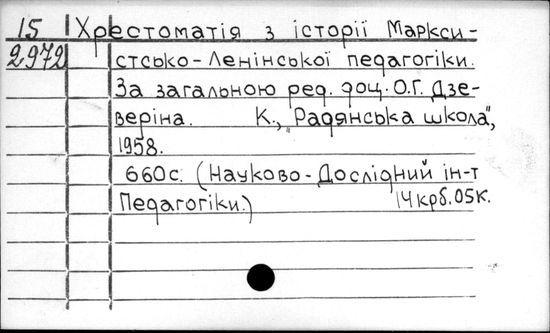 15 Хрестоматія з історії Маркси-
2972 стсько-Ленінської педагогіки.
За загальною ред. доц. О.Г. Дзе-
веріна. К., „Радянська школа",
1958.
660с. (Науково-Дослідний ін-т
Педагогіки.) 14крб.05к.